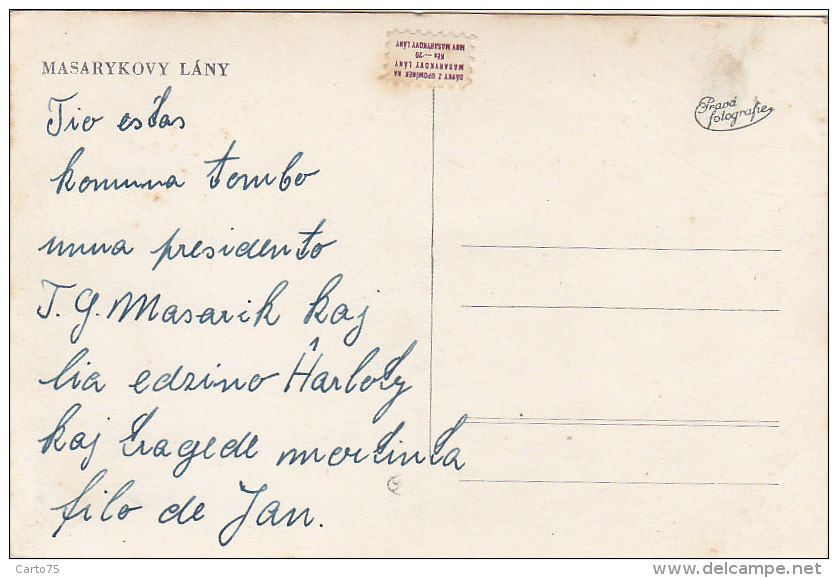 MASARYKOVY LÁNY
DÁVKY Z UPOMÍNEK NA
MASARYKOVY LÁNY
Kčs —·20
MNV MASARYKOVY LÁNY
Pravá
fotografie
Tio estas
komuna tombo
unua presidento
T. G. Masarik kaj
lia edzino Ĥarloty
kaj tragede mortinta
filo de Jan.
Carto75
delcampe.net